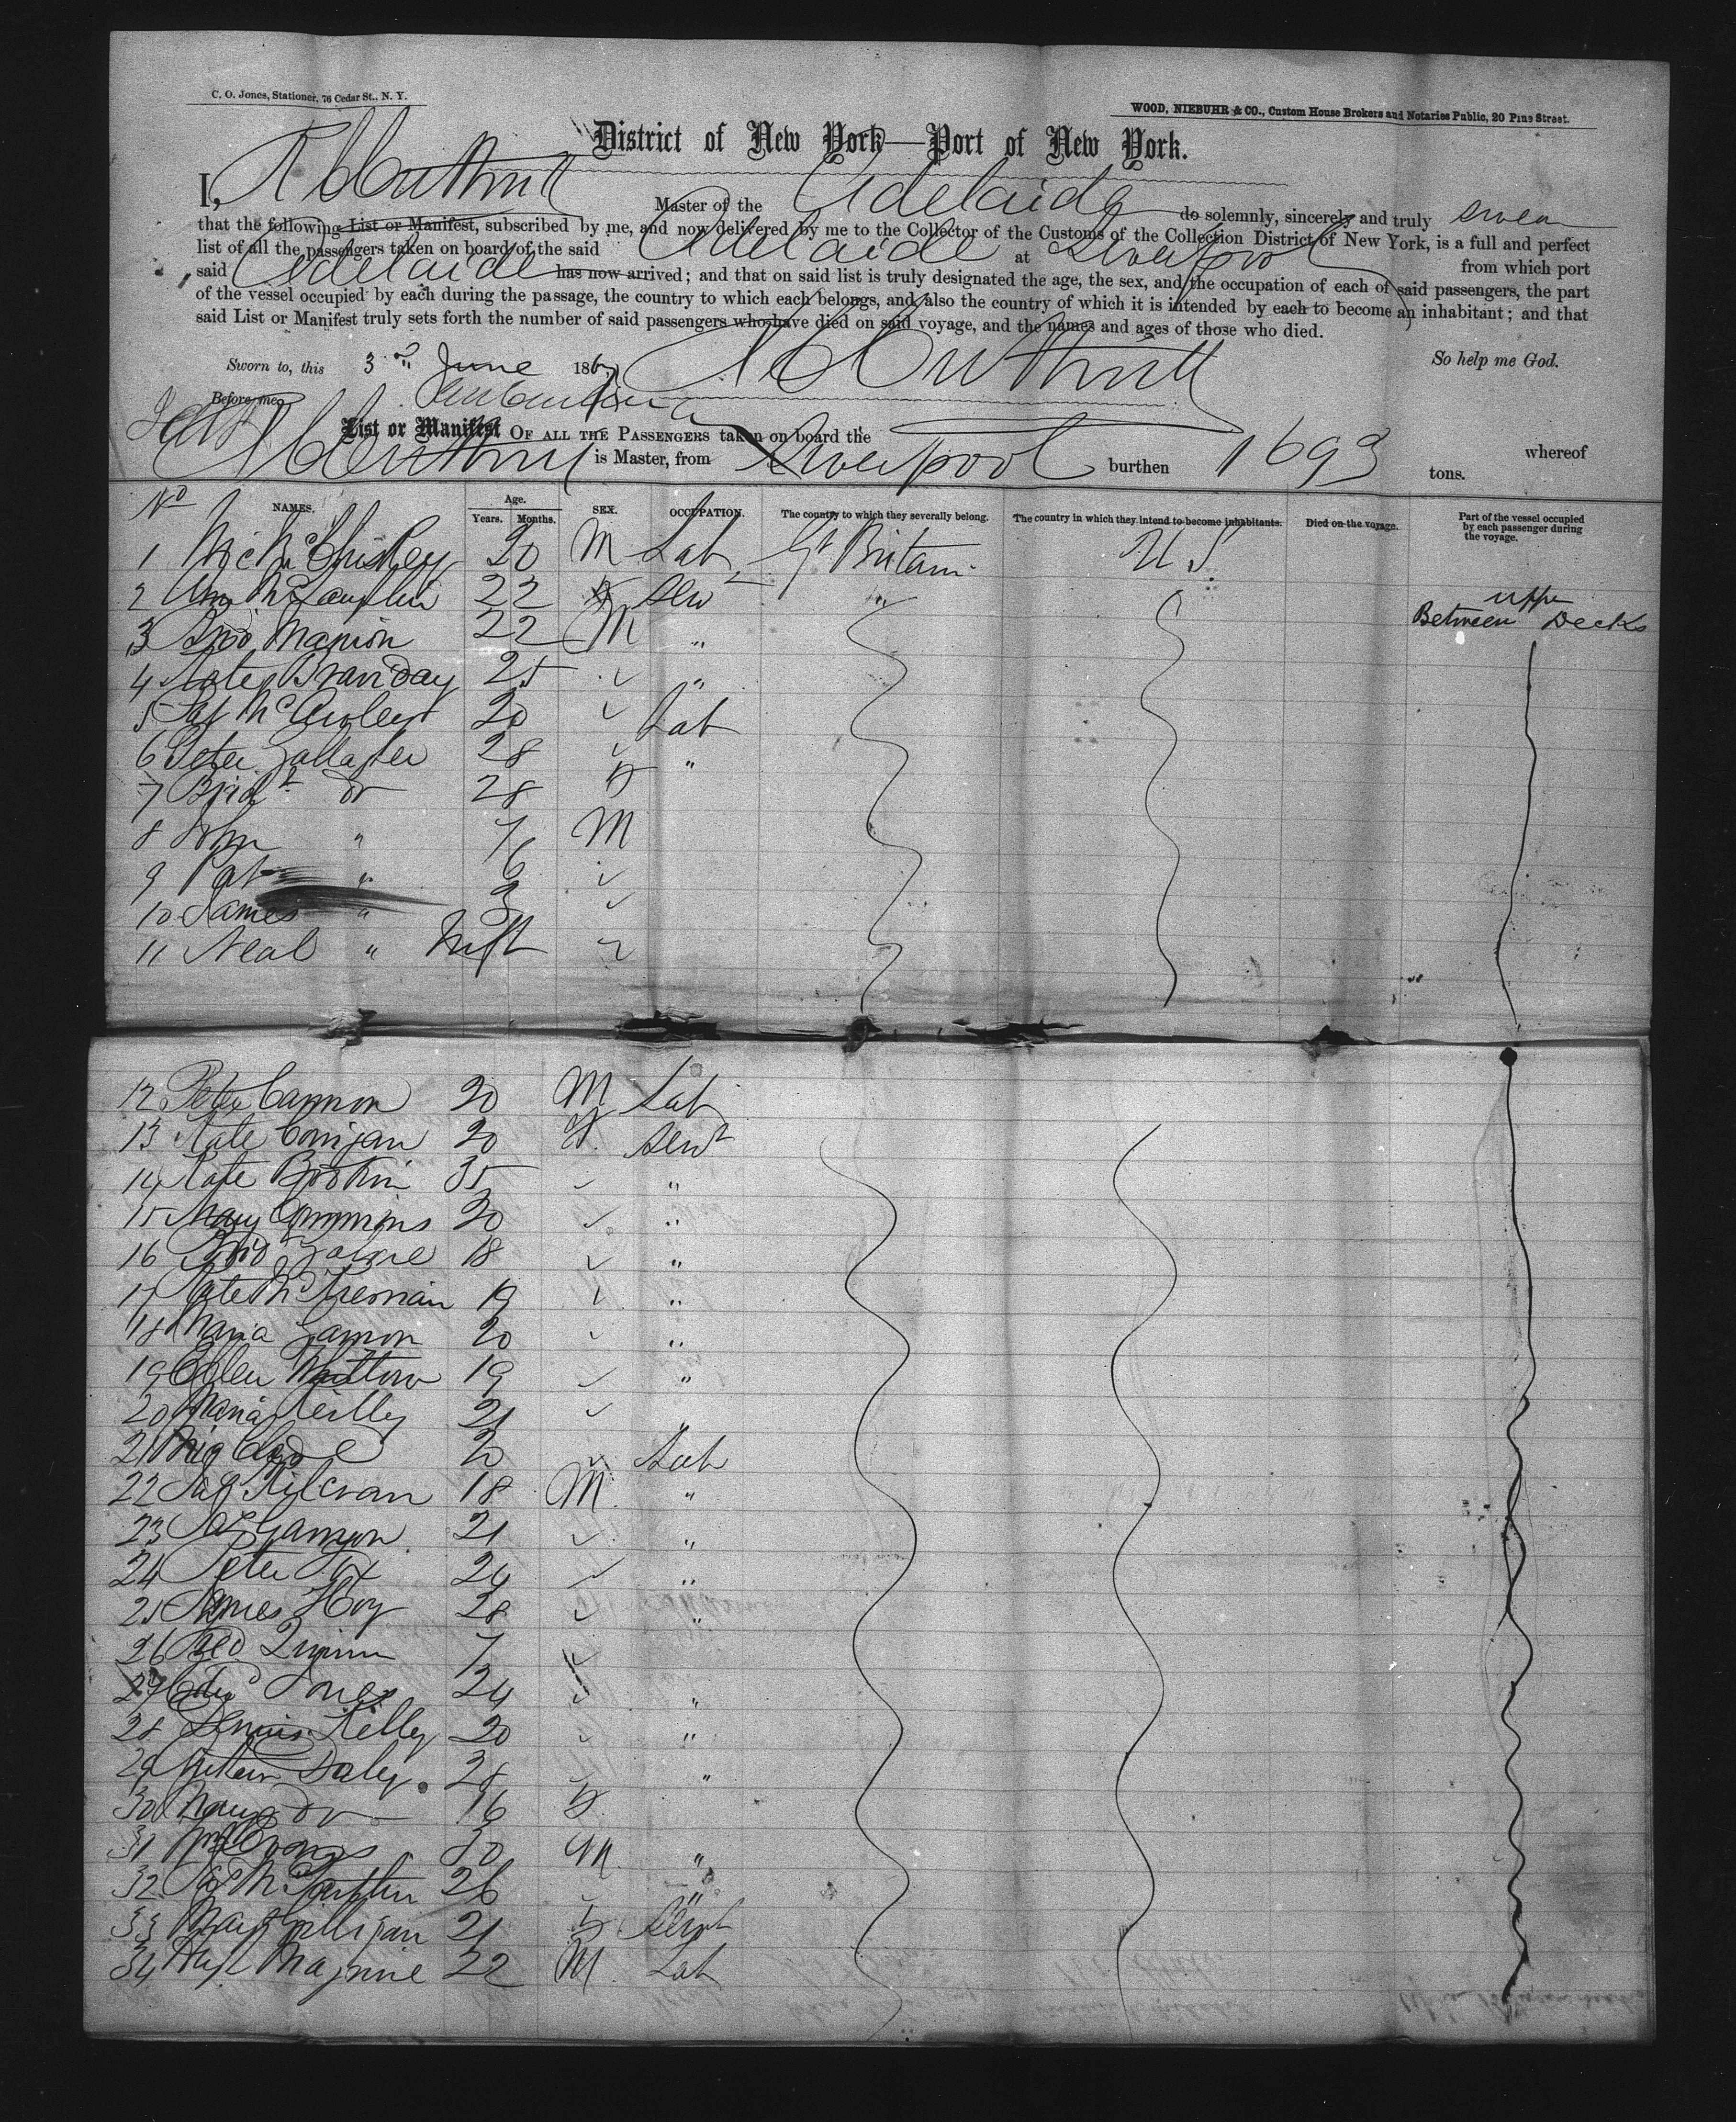 C. O. Jones, Stationer, 76 Cedar St., N. Y.
WOOD, NIEBUHR & CO., Custom House Brokers and Notaries Public, 20 Pine Street.
District of New York—Port of New York.
I, Master of the Adelaide do solemnly, sincerely and truly swear
that the following List or Manifest, subscribed by me, and now delivered by me to the Collector of the Customs of the Collection District of New York, is a full and perfect
list of all the passengers taken on board of the said Adelaide at Liverpool from which port
said Adelaide has now arrived; and that on said list is truly designated the age, the sex, and the occupation of each of said passengers, the part
of the vessel occupied by each during the passage, the country to which each belongs, and also the country of which it is intended by each to become an inhabitant; and that
said List or Manifest truly sets forth the number of said passengers who have died on said voyage, and the names and ages of those who died.
Sworn to, this 3rd June 1867 So help me God.
Before me,
List or Manifest OF ALL THE PASSENGERS taken on board the whereof
is Master, from Liverpool burthen 1693 tons.
No NAMES. Age. Years. Months. SEX. OCCUPATION. The country to which they severally belong. The country in which they intend to become inhabitants. Died on the voyage. Part of the vessel occupied by each passenger during the voyage.
1 20 M Lab Gt Britain U S
2 22 Serv " Upper Between Decks
3 Manion 22 M "
4 25 "
5 20 Lab
6 Peter Gallagher 28 "
7 Bridt do 28 F
8 John " 7 M
9 Pat " 6
10 James " 3
11 Neal " Inft
12 Peter Cannon 20 M Lab
13 Kate Corrigan 20 F Servt
14 Kate 35 "
15 Mary Commins 20 "
16 18 "
17 Kate McKiernan 19 "
18 Maria Gannon 20 "
19 Ellen 19 "
20 Maria Reilly 21
21 20 Lab
22 18 M "
23 21 "
24 Peter Fox 24 "
25 James Hoy 28 "
26 Geo Quinn 7
27 Edwd Jones 24 "
28 Dennis Kelly 20 "
29 Daly 28 "
30 Mary do 26 F
31 30 M "
32 26 "
33 Mary Gilligan 21 F Servt
34 22 M Lab